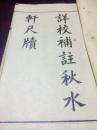 詳校補註秋水
軒尺牘